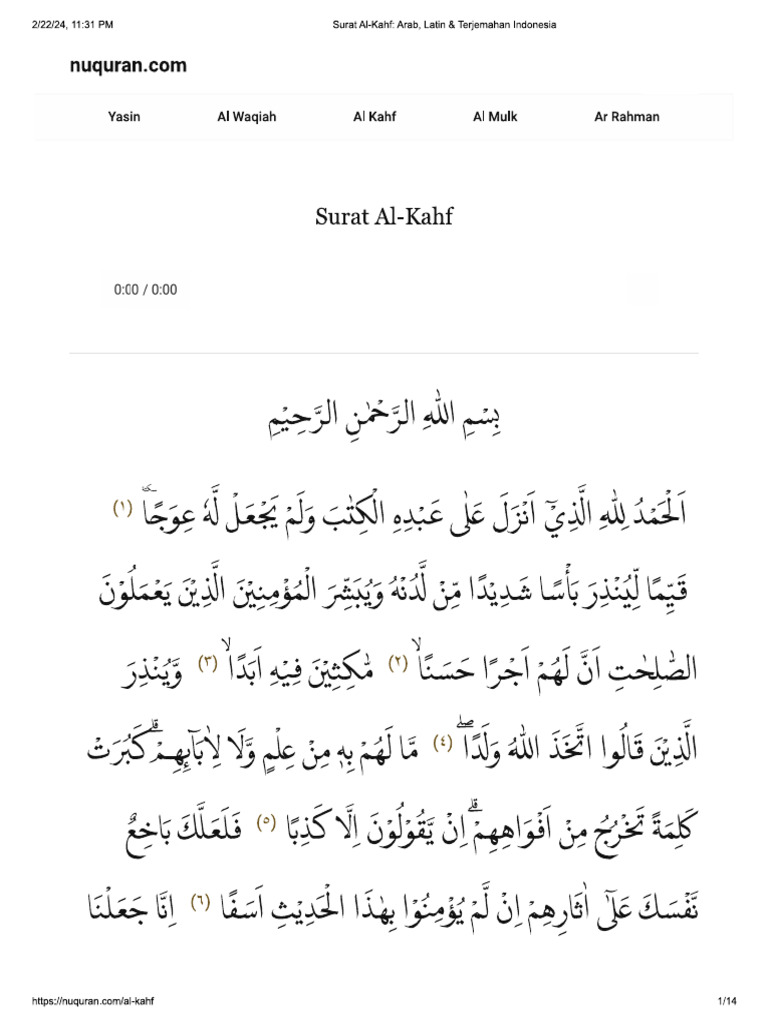 2/22/24, 11:31 PM Surat Al-Kahf: Arab, Latin & Terjemahan Indonesia
nuquran.com
Yasin Al Waqiah Al Kahf Al Mulk Ar Rahman
Surat Al-Kahf
0:00 / 0:00
بِسْمِ اللّٰهِ الرَّحْمٰنِ الرَّحِيْمِ
اَلْحَمْدُ لِلّٰهِ الَّذِيْٓ اَنْزَلَ عَلٰى عَبْدِهِ الْكِتٰبَ وَلَمْ يَجْعَلْ لَّهٗ عِوَجًا ۜ (١)
قَيِّمًا لِّيُنْذِرَ بَأْسًا شَدِيْدًا مِّنْ لَّدُنْهُ وَيُبَشِّرَ الْمُؤْمِنِيْنَ الَّذِيْنَ يَعْمَلُوْنَ
الصّٰلِحٰتِ اَنَّ لَهُمْ اَجْرًا حَسَنًاۙ (٢) مّٰكِثِيْنَ فِيْهِ اَبَدًاۙ (٣) وَّيُنْذِرَ
الَّذِيْنَ قَالُوا اتَّخَذَ اللّٰهُ وَلَدًاۖ (٤) مَّا لَهُمْ بِهٖ مِنْ عِلْمٍ وَّلَا لِاٰبَاۤىِٕهِمْۗ كَبُرَتْ
كَلِمَةً تَخْرُجُ مِنْ اَفْوَاهِهِمْۗ اِنْ يَّقُوْلُوْنَ اِلَّا كَذِبًا (٥) فَلَعَلَّكَ بَاخِعٌ
نَّفْسَكَ عَلٰٓى اٰثَارِهِمْ اِنْ لَّمْ يُؤْمِنُوْا بِهٰذَا الْحَدِيْثِ اَسَفًا (٦) اِنَّا جَعَلْنَا
https://nuquran.com/al-kahf 1/14